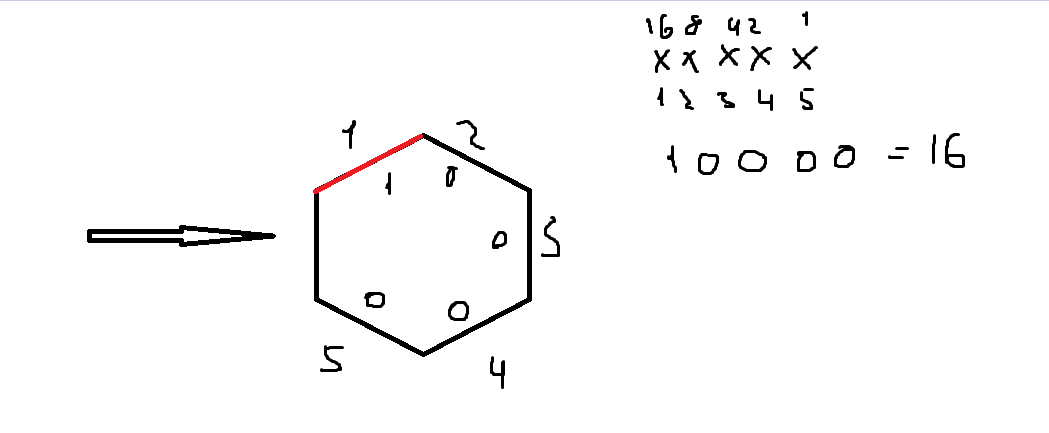 16 8 4 2 1
X X X X X
1 2 3 4 5
1 0 0 0 0 = 16
1 2
1 0
0 3
0 0
5 4